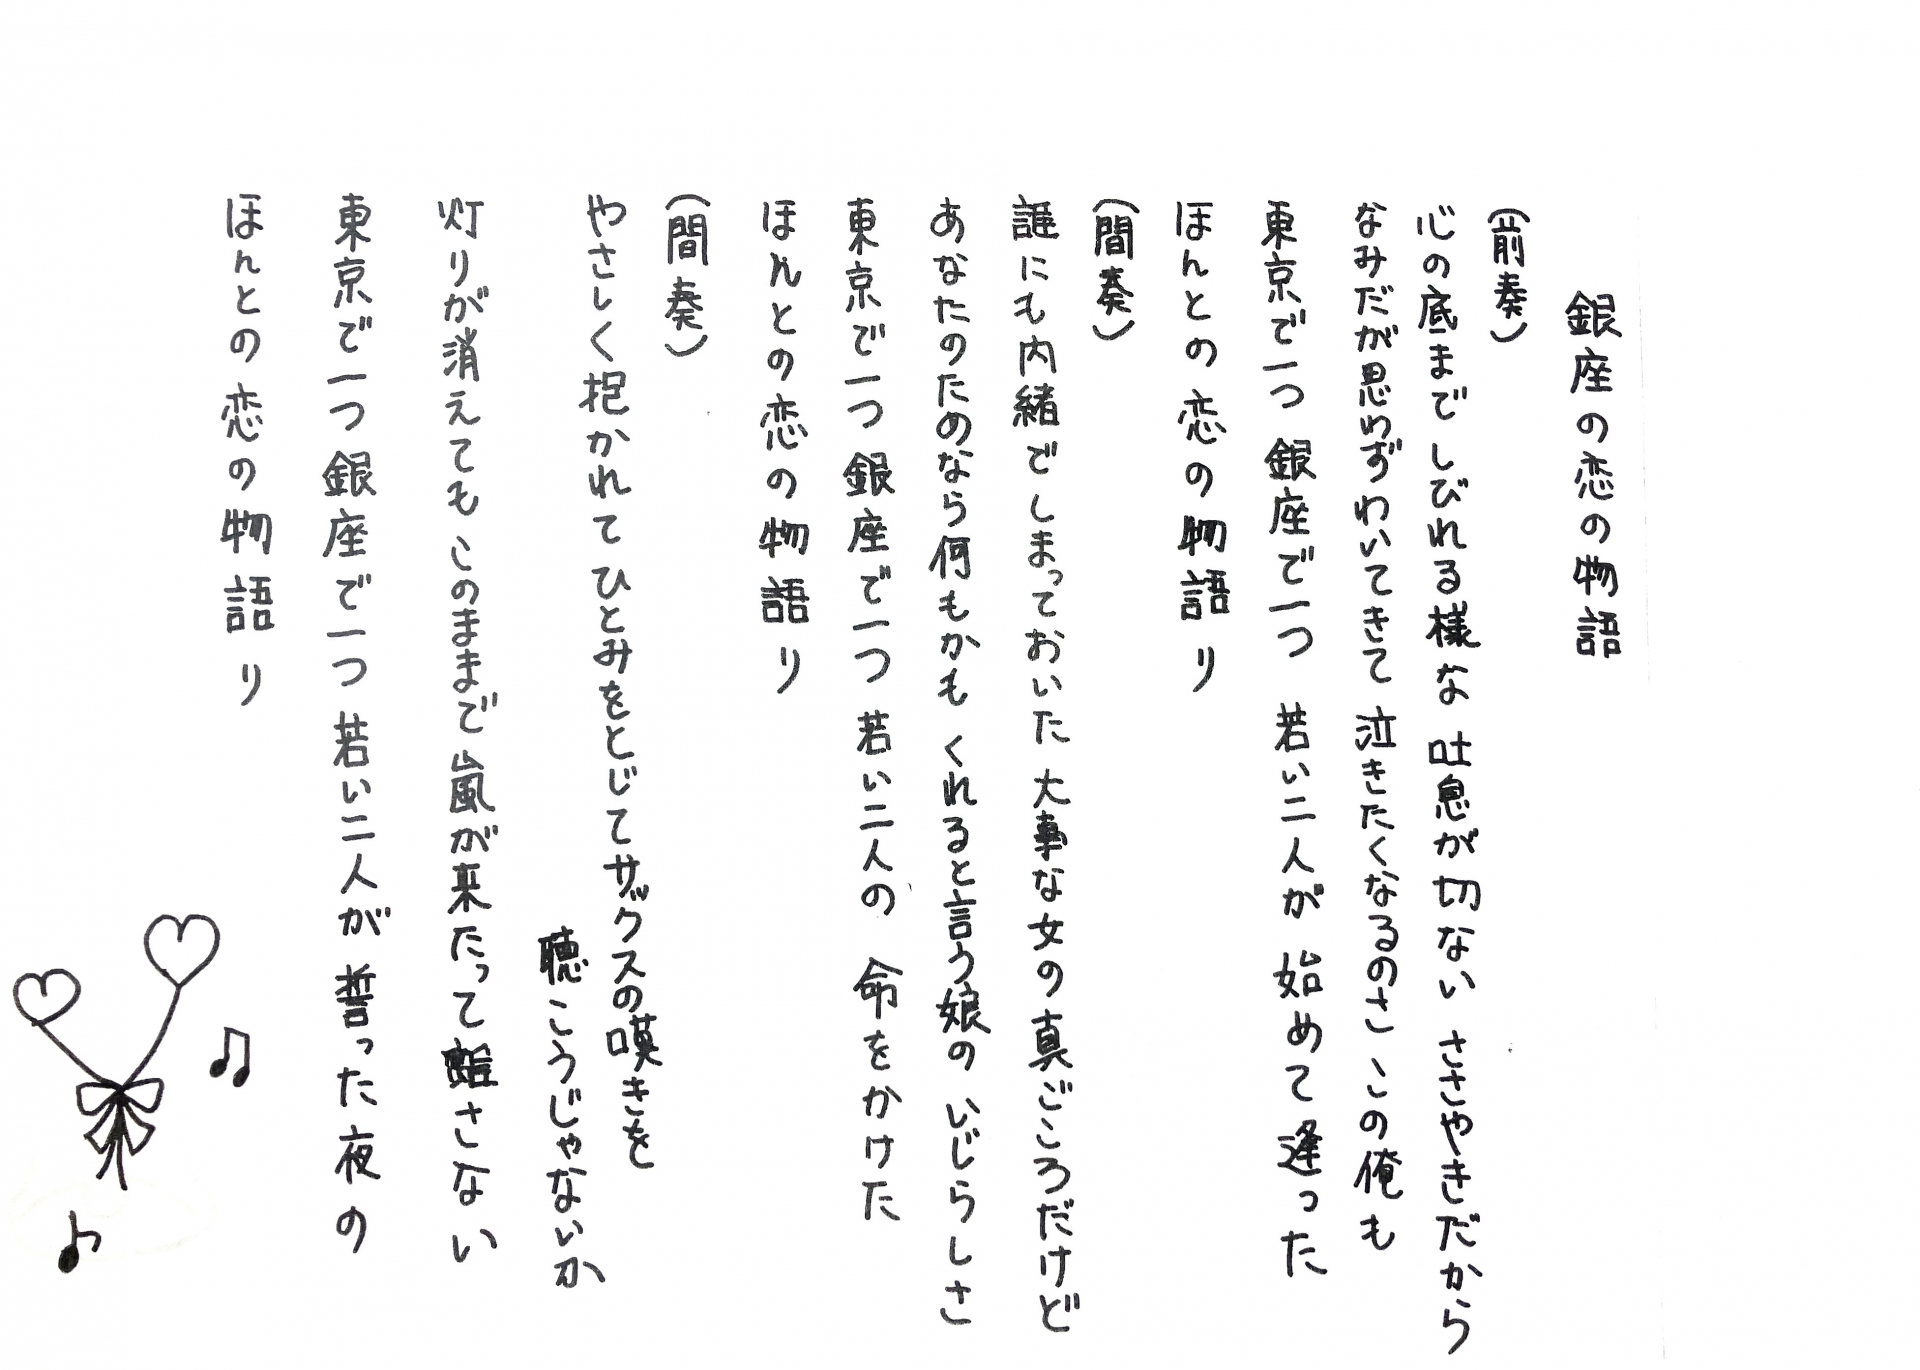 銀座の恋の物語
(前奏)
心の底まで しびれる様な 吐息が切ない ささやきだから
なみだが思わずわいてきて 泣きたくなるのさ この俺も
東京で一つ 銀座で一つ 若い二人が 始めて逢った
ほんとの恋の物語り
(間奏)
誰にも内緒で しまっておいた 大事な女の真ごころだけど
あなたのためなら何もかも くれると言う娘の いじらしさ
東京で一つ 銀座で一つ 若い二人の 命をかけた
ほんとの恋の物語り
(間奏)
やさしく抱かれて ひとみをとじて サックスの嘆きを
聴こうじゃないか
灯りが消えても このままで 嵐が来たって 離さない
東京で一つ 銀座で一つ 若い二人が 誓った夜の
ほんとの恋の物語り